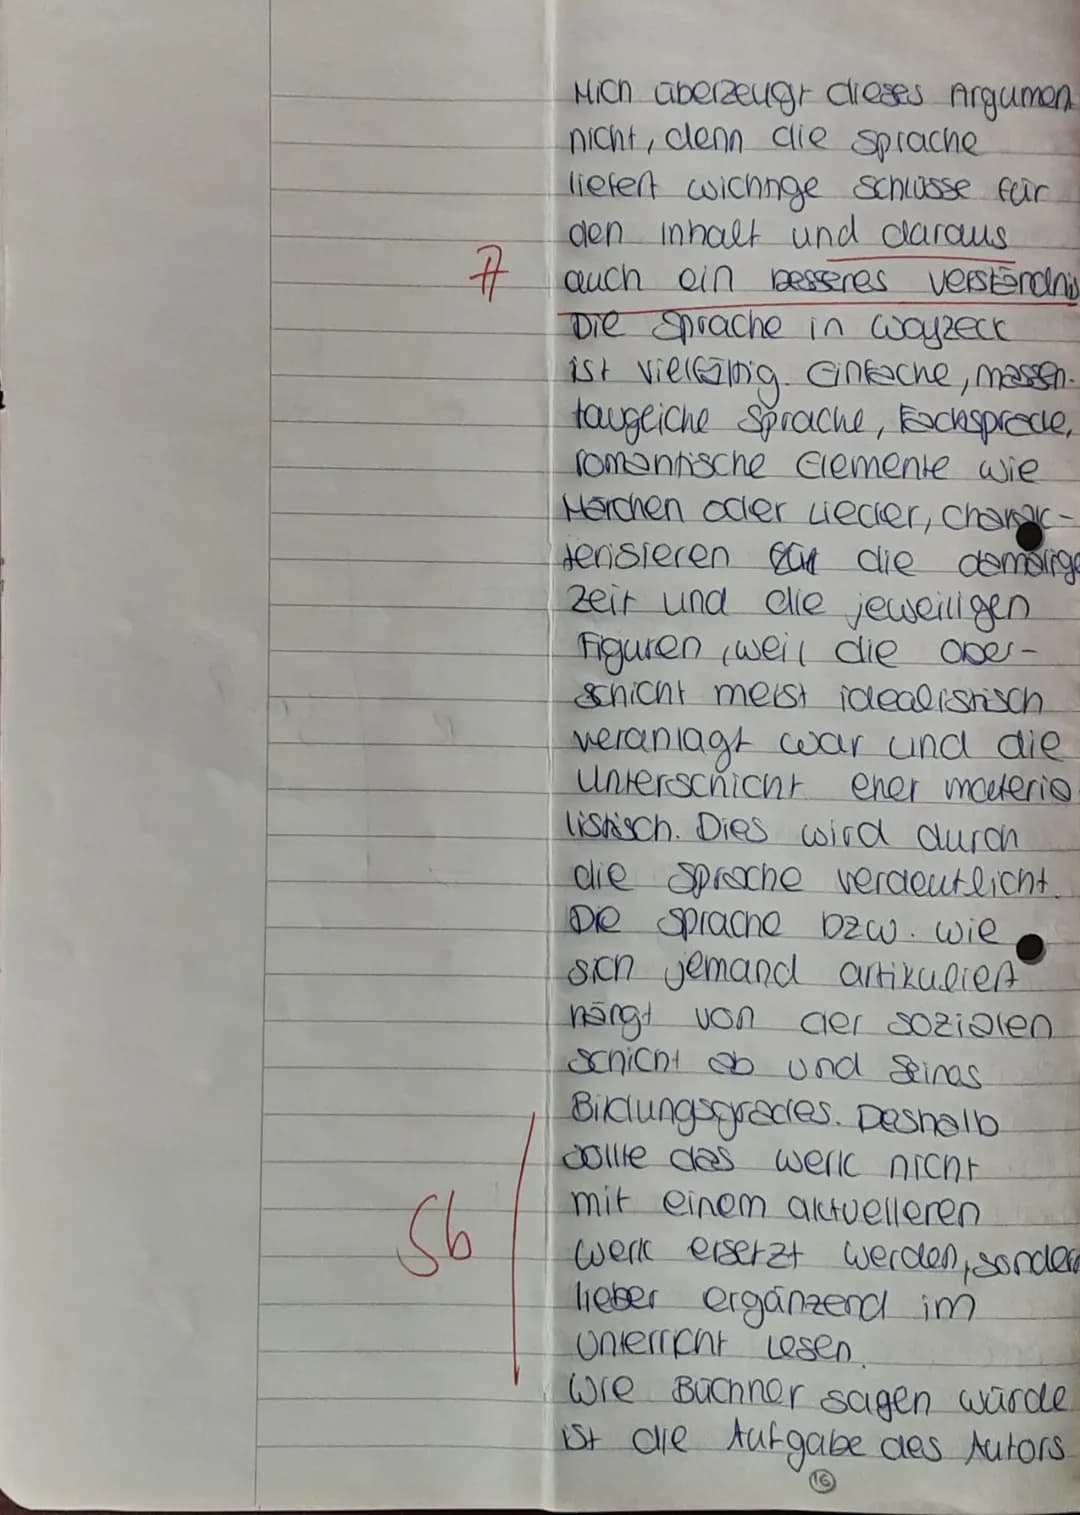 Mich überzeugt dieses Argumen
nicht, denn die Sprache
liefert wichtige Schlüsse für
den Inhalt und daraus
A auch ein besseres Verständnis
Die Sprache in Woyzeck
ist vielfältig. Einfache, massen-
taugliche Sprache, Fachsprache,
romantische Elemente wie
Märchen oder Lieder, charak-
terisieren die damalige
Zeit und die jeweiligen
Figuren, weil die Ober-
schicht meist idealistisch
veranlagt war und die
Unterschicht eher materia
listisch. Dies wird durch
die Sprache verdeutlicht.
Die Sprache bzw. wie
sich jemand artikuliert
hängt von der sozialen
Schicht ab und seines
Bildungsgrades. Deshalb
sollte das Werk nicht
mit einem aktuelleren
Sb Werk ersetzt werden, sondern
lieber ergänzend im
Unterricht lesen.
Wie Büchner sagen würde
ist die Aufgabe des Autors
16